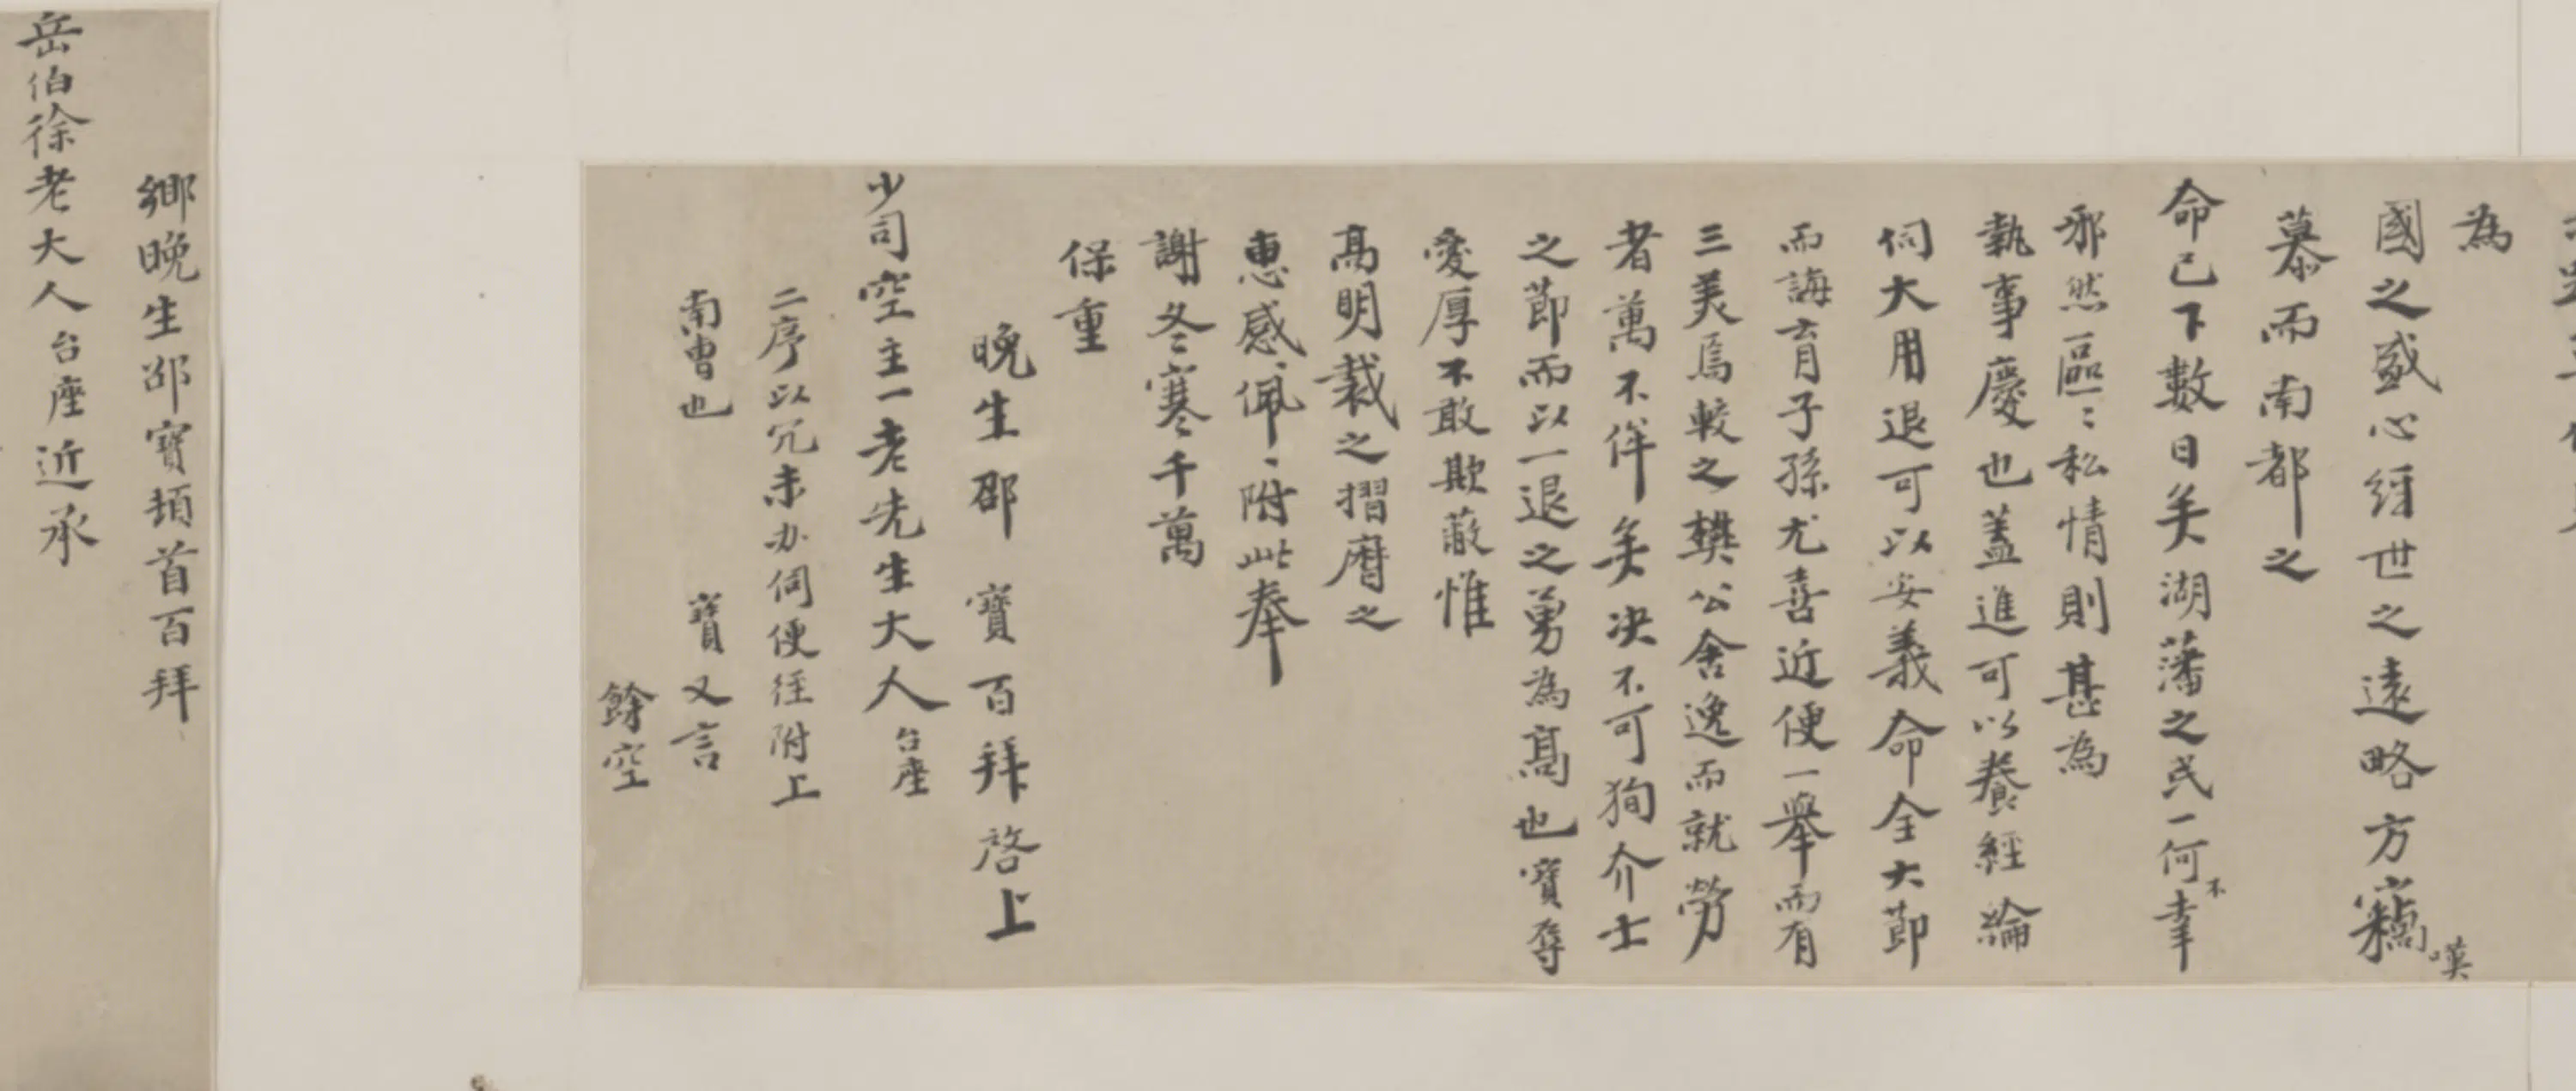 為
國之盛心經世之遠略方竊嘆
慕而南都之
命已下數日矣湖藩之民一何不幸
邪然區〻私情則甚為
執事慶也蓋進可以養經綸
伺大用退可以安義命全大節
而誨育子孫尤喜近便一舉而有
三美焉較之樊公舍逸而就勞
者萬不侔矣决不可狥介士
之節而以一退之勇為高也寶辱
愛厚不敢欺蔽惟
高明裁之摺曆之
惠感〻佩〻附此奉
謝冬寒千萬
保重
晚生邵寶百拜啓上
少司空主一老先生大人台座
二序以冗未办伺便徑附上
南曹也 寶又言
餘空
鄉晚生邵寶頓首百拜
岳伯徐老大人台座近承